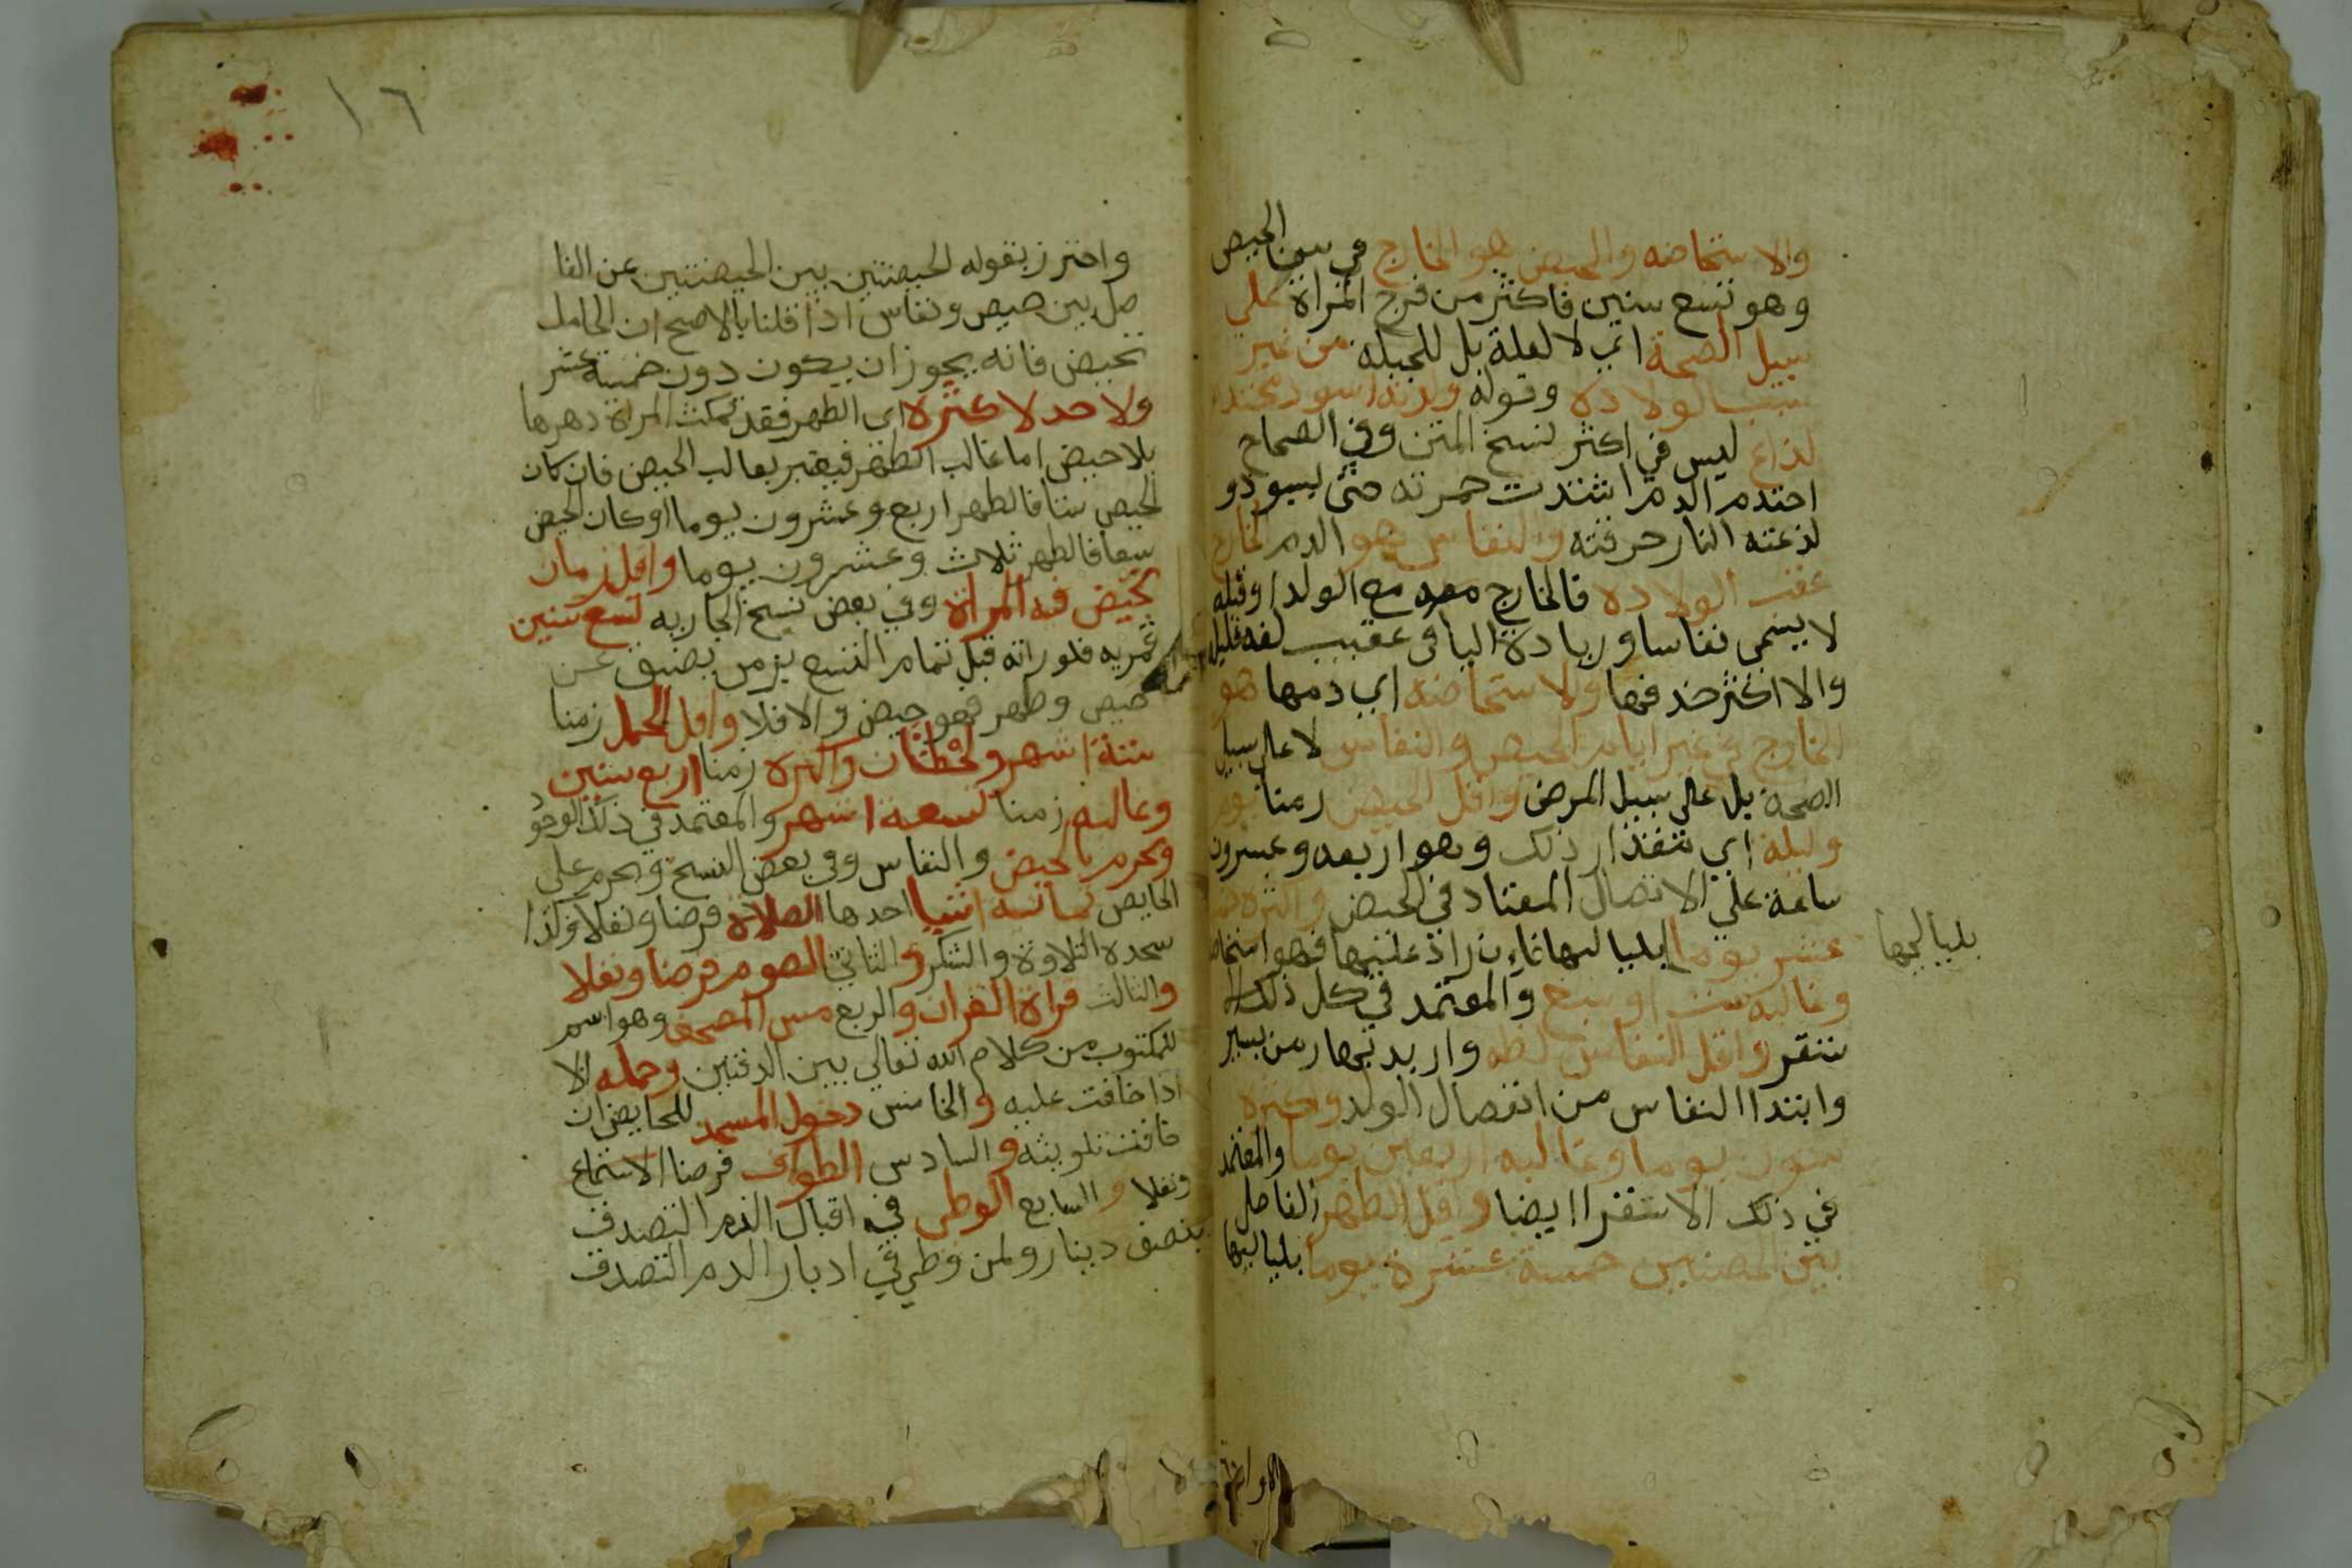 والاستحاضه والحيض هو الخارج في سن الحيض
وهو تسع سنين فاكثر من فرج المراة علي
سبيل الصحة اي لا لعلة بل للجبله من غير
سبب الولادة وقوله ولونه اسود محتدم
لذاع ليس في اكثر نسخ المتن وفي الصحاح
احتدم الدم اشتدت حمرته حتى يسود و
لذعته النار حرقته والنفاس هو الدم الخارج
عقب الولادة فالخارج مع الولد او قبله
لا يسمى نفاسا وزيادة اليا في عقيب لغه قليله
والا اكثر حذفها والاستحاضه اي دمها هو
الخارج في غير ايام الحيض والنفاس لا على سبيل
الصحة بل على سبيل المرض واقل الحيض زمنا يوم
وليلة اي مقدار ذلك وهو اربعه وعشرون
ساعة علي الاتصال المعتاد في الحيض واكثره خمسة
عشر يوما بلياليها فان زاد عليها فهو استحاضة
بلياليها
وغالبه ست او سبع والمعتمد في كل ذلك الا
ستقر واقل النفاس لحظه واريد بها زمن يسير
وابتدا النفاس من انفصال الولد واكثره
ستون يوما وغالبه اربعين يوما والمعتمد
في ذلك الاستقرا ايضا واقل الطهر الفاصل
بين الحيضتين خمسة عشرة يوما بلياليها
١٦
واحترز بقوله الحيضتين بين الحيضتين عن الفا
صل بين حيض ونفاس اذا قلنا بالاصح ان الحامل
تحيض فانه يجوز ان يكون دون خمسة عشر
ولا حد لاكثره اي الطهر فقد تمكث المراة دهرها
بلا حيض اما غالب الطهر فيعتبر بغالب الحيض فان كان
الحيض ستا فالطهر اربع وعشرون يوما او كان الحيض
سبعا فالطهر ثلاث وعشرون يوما واقل زمان
تحيض فيه المراة وفي بعض نسخ الجاريه تسع سنين
قمريه فلو راته قبل تمام التسع بزمن يضيق عن
حيض وطهر فهو حيض والا فلا واقل الحمل زمنا
ستة اشهر ولحظتان واكثره زمنا اربع سنين
وغالبه زمنا تسعة اشهر والمعتمد في ذلك الوجود
ويحرم بالحيض والنفاس وفي بعض النسخ ويحرم على
الحايض ثمانية اشيا احدها الصلاة فرضا ونفلا وكذا
سجدة التلاوة والشكر والثاني الصوم فرضا ونفلا
والثالث قراة القران والربع مس المصحف وهو اسم
للمكتوب من كلام الله تعالى بين الدفتين وحمله الا
اذا خافت عليه والخامس دخول المسجد للحايض ان
خافت تلويثه والسادس الطواف فرضا الاستمتاع
ونفلا والسابع الوطى في اقبال الدم التصدق
بنصف دينار ولمن وطي في ادبار الدم التصدق